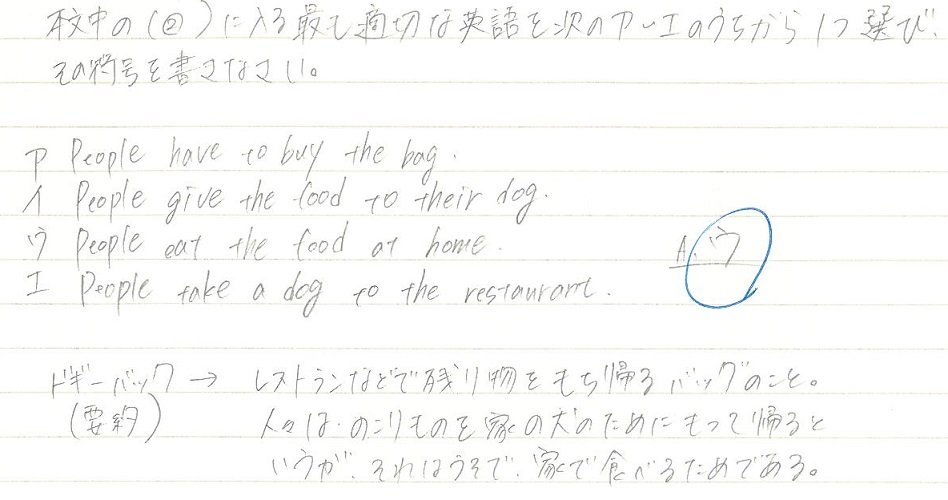 本文中の(②)に入る最も適切な英語を次のア~エのうちから1つ選び、
その符号を書きなさい。
ア People have to buy the bag.
イ People give the food to their dog.
ウ People eat the food at home.
エ People take a dog to the restaurant.
A. ウ
ドギーバック → レストランなどで残り物をもち帰るバッグのこと。
(要約) 人々は、のこりものを家の犬のためにもって帰ると
いうが、それはうそで、家で食べるためである。